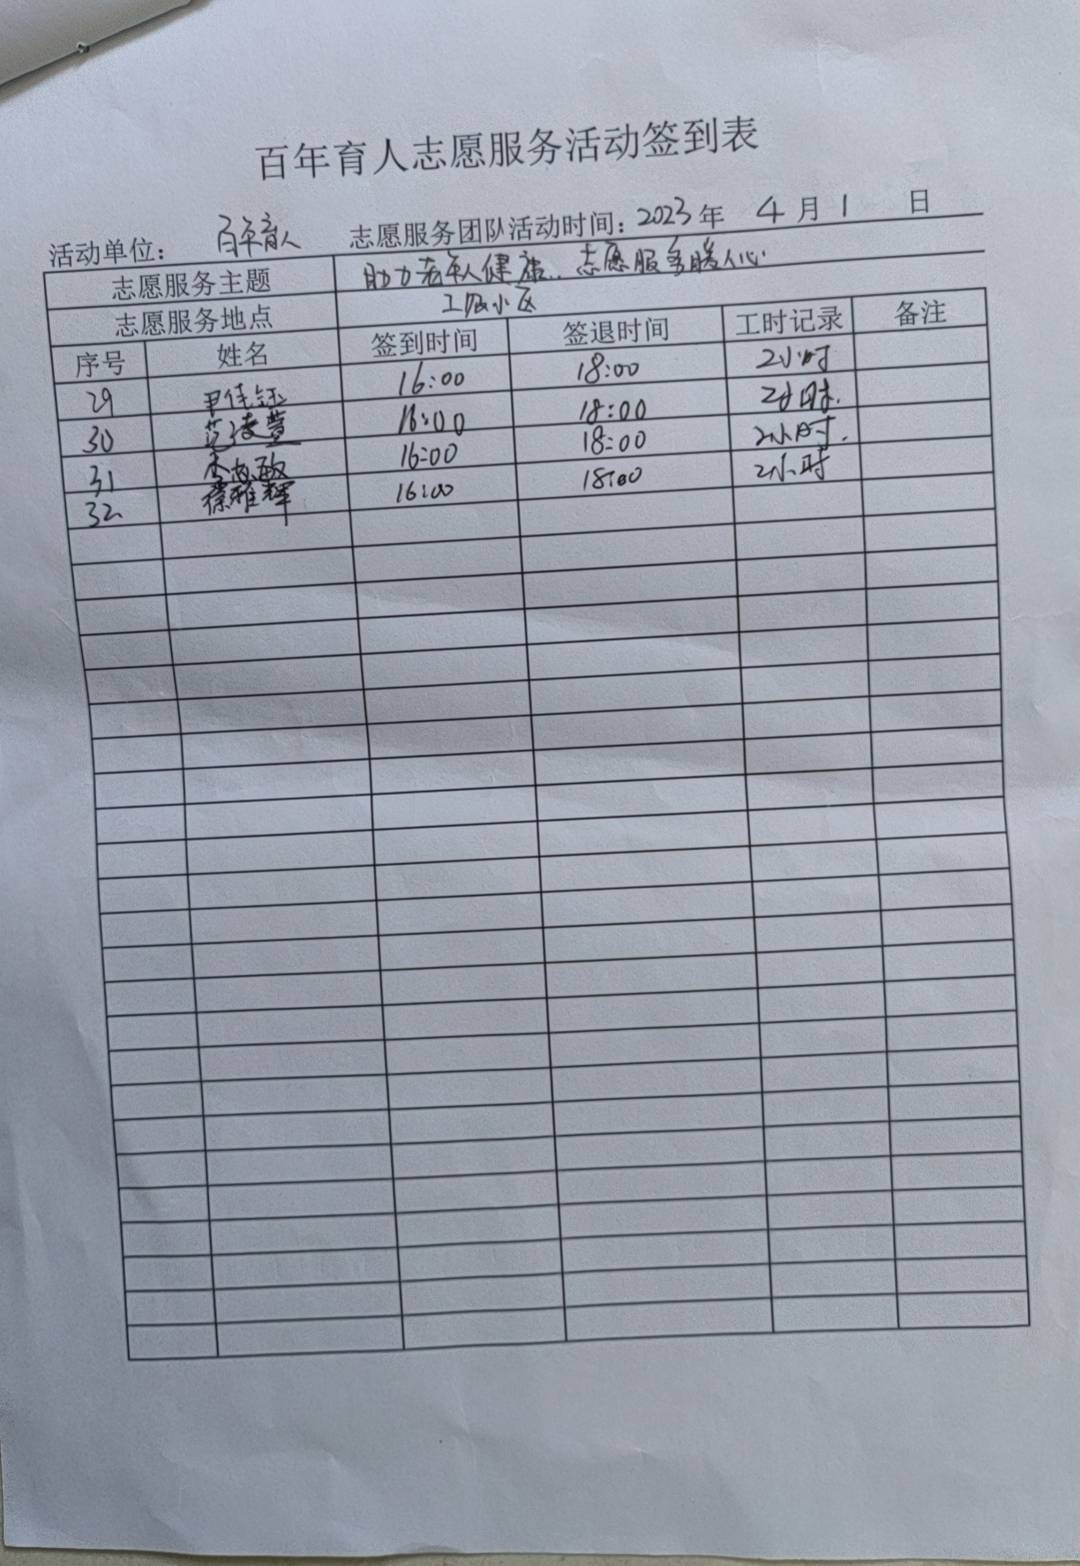 百年育人志愿服务活动签到表
活动单位： 百年育人 志愿服务团队活动时间：2023年 4月1 日
志愿服务主题 助力老年人健康、志愿服务暖人心
志愿服务地点 工段小区
序号 姓名 签到时间 签退时间 工时记录 备注
29 尹佳钰 16:00 18:00 2小时
30 范凌萱 16:00 18:00 2小时.
31 16:00 18:00 2小时.
32 蔡雅辉 16:00 18:00 2小时